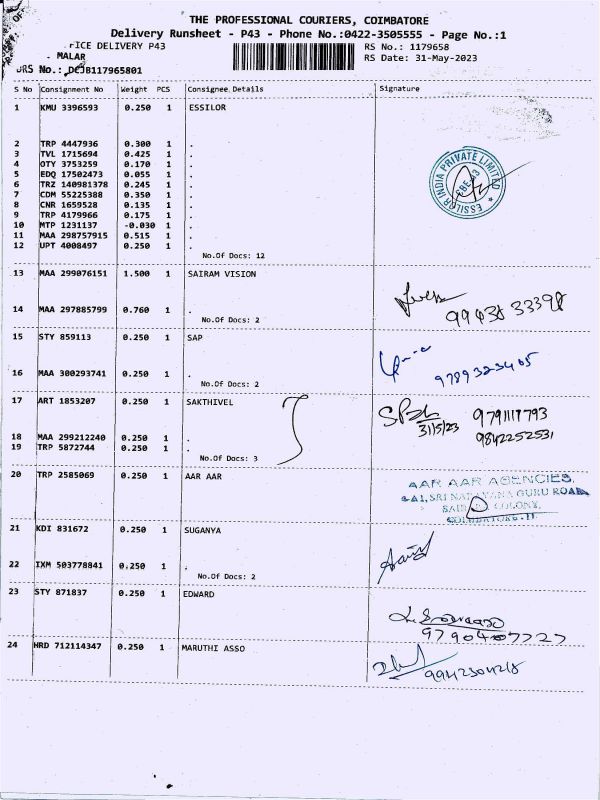 THE PROFESSIONAL COURIERS, COIMBATORE
Delivery Runsheet - P43 - Phone No.:0422-3505555 - Page No.:1
FICE DELIVERY P43 RS No.: 1179658
- MALAR RS Date: 31-May-2023
DRS No.: DCJB117965801
S No Consignment No Weight PCS Consignee Details Signature
1 KMU 3396593 0.250 1 ESSILOR
2 TRP 4447936 0.300 1 .
3 TVL 1715694 0.425 1 .
4 OTY 3753259 0.170 1 .
5 EDQ 17502473 0.055 1 .
6 TRZ 140981378 0.245 1 .
7 CDM 55225388 0.350 1 .
8 CNR 1659528 0.135 1 .
9 TRP 4179966 0.175 1 .
10 MTP 1231137 -0.030 1 .
11 MAA 298757915 0.515 1 .
12 UPT 4008497 0.250 1 .
No.Of Docs: 12
ESSILOR INDIA PRIVATE LIMITED
13 MAA 299076151 1.500 1 SAIRAM VISION
14 MAA 297885799 0.760 1 .
No.Of Docs: 2
15 STY 859113 0.250 1 SAP
9789323405
16 MAA 300293741 0.250 1 .
No.Of Docs: 2
17 ART 1853207 0.250 1 SAKTHIVEL
9791117793
31/5/23 9842252531
18 MAA 299212240 0.250 1 .
19 TRP 5872744 0.250 1 .
No.Of Docs: 3
20 TRP 2585069 0.250 1 AAR AAR
AAR AAR AGENCIES,
SRI NARAYANA GURU ROAD,
COLONY,
COIMBATORE-11
21 KDI 831672 0.250 1 SUGANYA
22 IXM 503778841 0.250 1 .
No.Of Docs: 2
23 STY 871837 0.250 1 EDWARD
9790407727
24 HRD 712114347 0.250 1 MARUTHI ASSO
9942304218